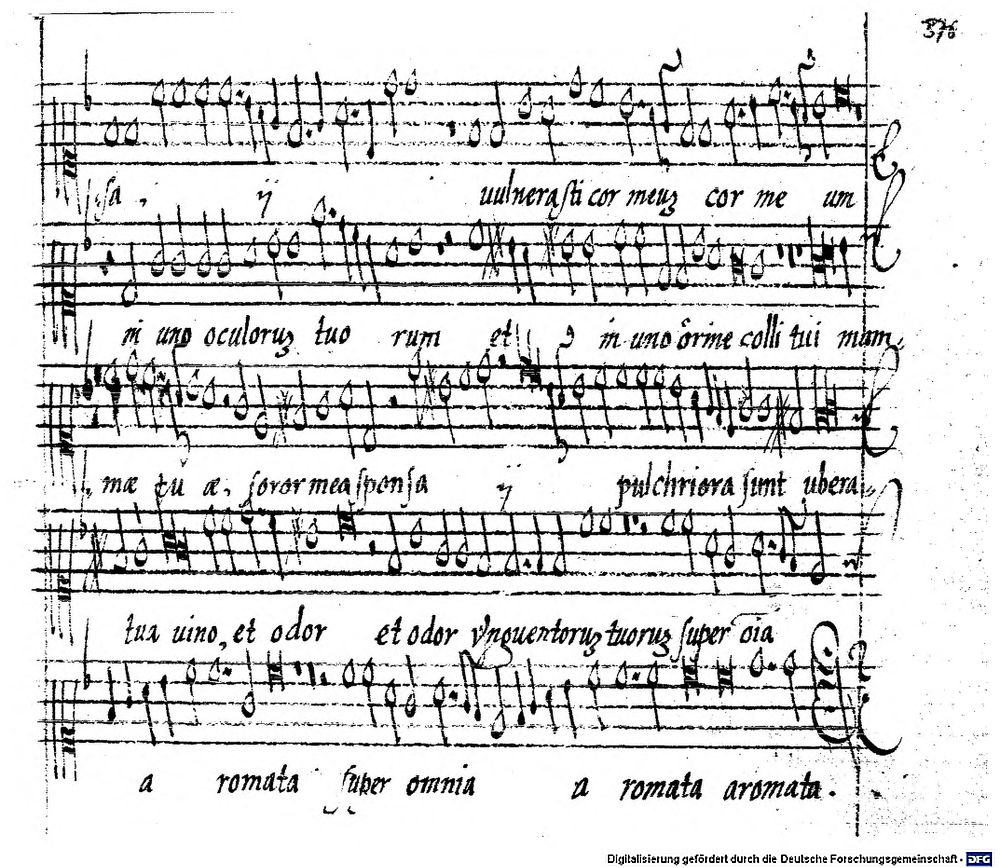 376
ssa , ij uulnerasti cor meuʒ cor me um
in uno oculoruʒ tuo rum et in uno crine colli tui mam,
mæ tu æ, soror mea sponsa ij pulchriora sunt ubera
tua uino, et odor et odor ỹnguentoruʒ tuoruʒ super o͞ia
a romata super omnia a romata aromata.
Digitalisierung gefördert durch die Deutsche Forschungsgemeinschaft - DFG